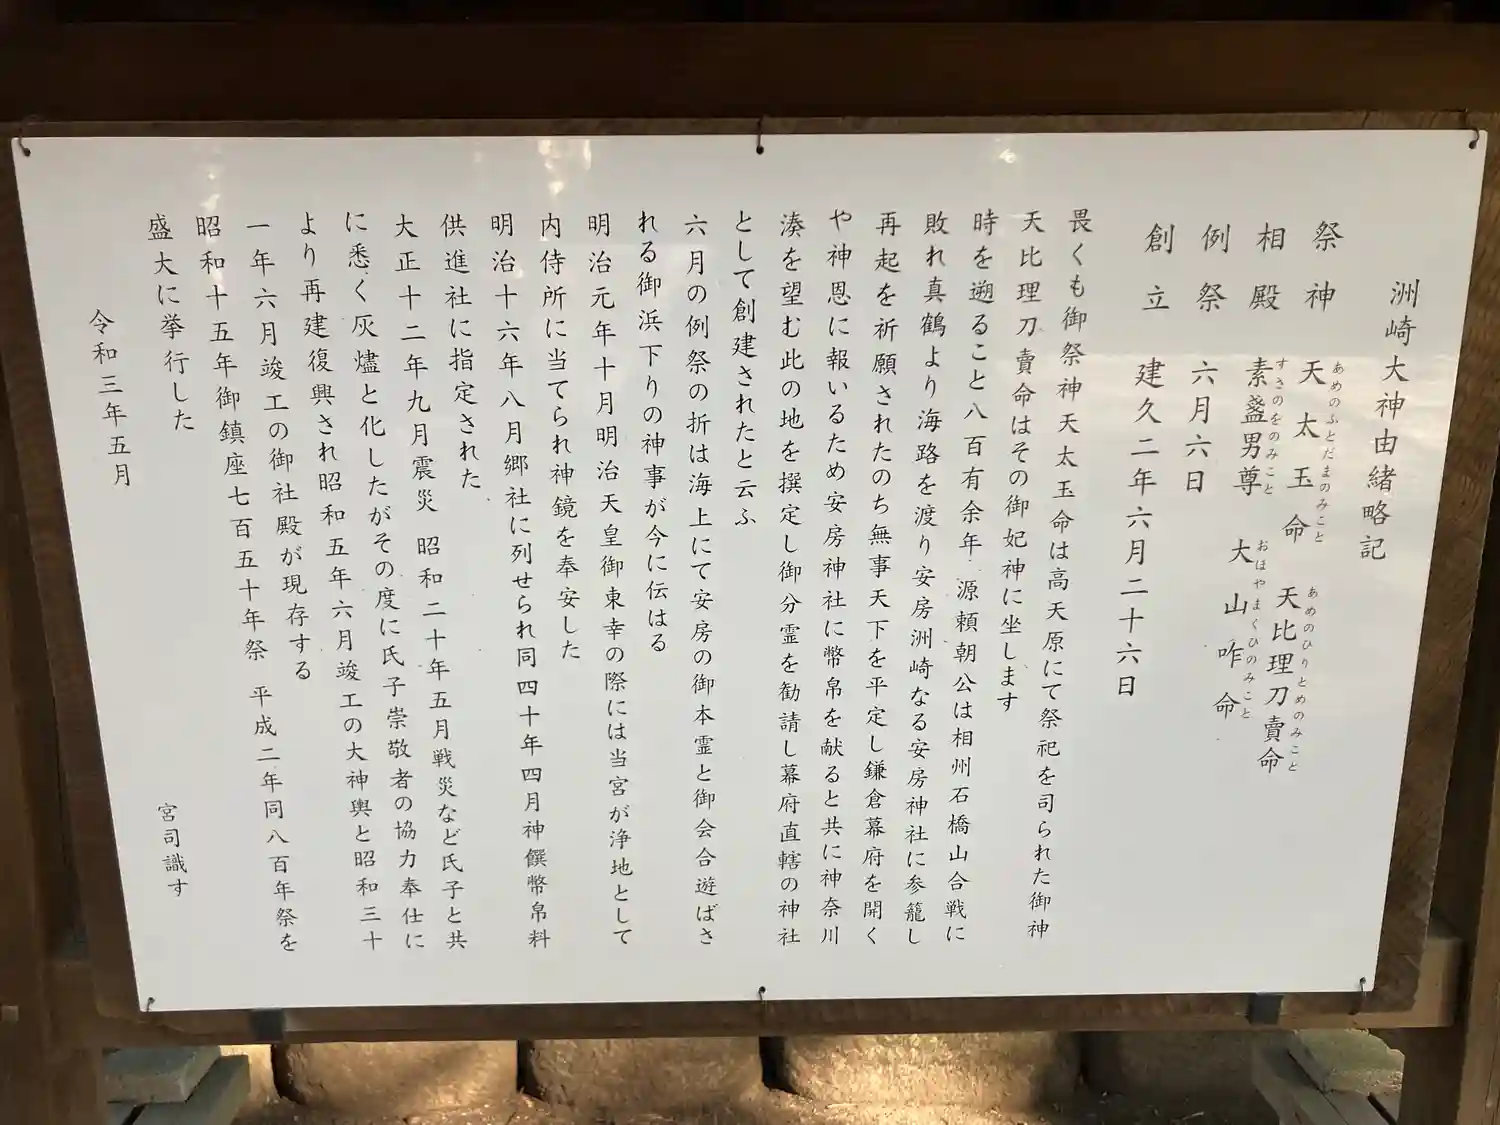 洲崎大神由緒略記
祭神 天太玉命 天比理刀賣命
あめのふとだまのみこと あめのひりとめのみこと
相殿 素盞男尊 大山咋命
すさのをのみこと おほやまくひのみこと
例祭 六月六日
創立 建久二年六月二十六日
畏くも御祭神天太玉命は高天原にて祭祀を司られた御神
天比理刀賣命はその御妃神に坐します
時を遡ること八百有余年 源頼朝公は相州石橋山合戦に
敗れ真鶴より海路を渡り安房洲崎なる安房神社に参籠し
再起を祈願されたのち無事天下を平定し鎌倉幕府を開く
や神恩に報いるため安房神社に幣帛を献ると共に神奈川
湊を望む此の地を撰定し御分霊を勧請し幕府直轄の神社
として創建されたと云ふ
六月の例祭の折は海上にて安房の御本霊と御会合遊ばさ
れる御浜下りの神事が今に伝はる
明治元年十月明治天皇御東幸の際には当宮が浄地として
内侍所に当てられ神鏡を奉安した
明治十六年八月郷社に列せられ同四十年四月神饌幣帛料
供進社に指定された
大正十二年九月震災 昭和二十年五月戦災など氏子と共
に悉く灰燼と化したがその度に氏子崇敬者の協力奉仕に
より再建復興され昭和五年六月竣工の大神輿と昭和三十
一年六月竣工の御社殿が現存する
昭和十五年御鎮座七百五十年祭 平成二年同八百年祭を
盛大に挙行した
宮司識す
令和三年五月